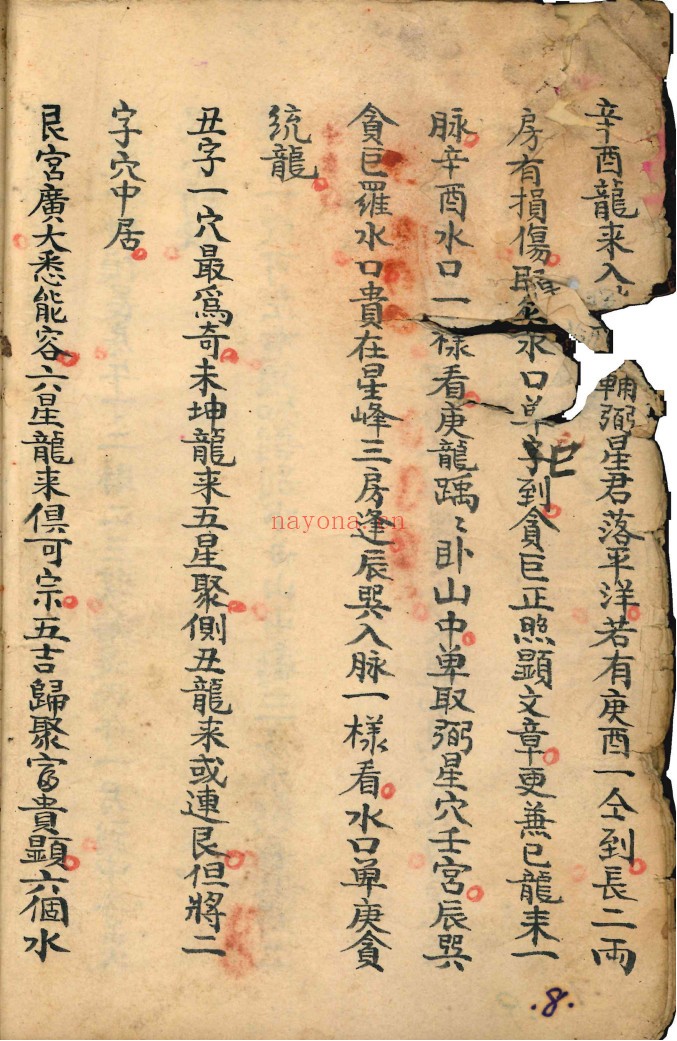 辛酉龍来入輔弼星君落平洋若有庚酉一仝到長二両
房有損傷水口单字巳到貪巨正照顕文章更兼巳龍来一
脉辛酉水口一様看庚龍踽〻卧山中单取弼星穴壬宮辰巽
貪巨羅水口貴在星峰三房逢辰巽入脉一様看水口单庚貪
统龍
丑字一穴最爲奇未坤龍来五星聚側丑龍来或連艮但將二
字穴中居
艮宮廣大悉能容六星龍来俱可宗五吉歸聚富貴顕六個水
.8.
nayona.cn